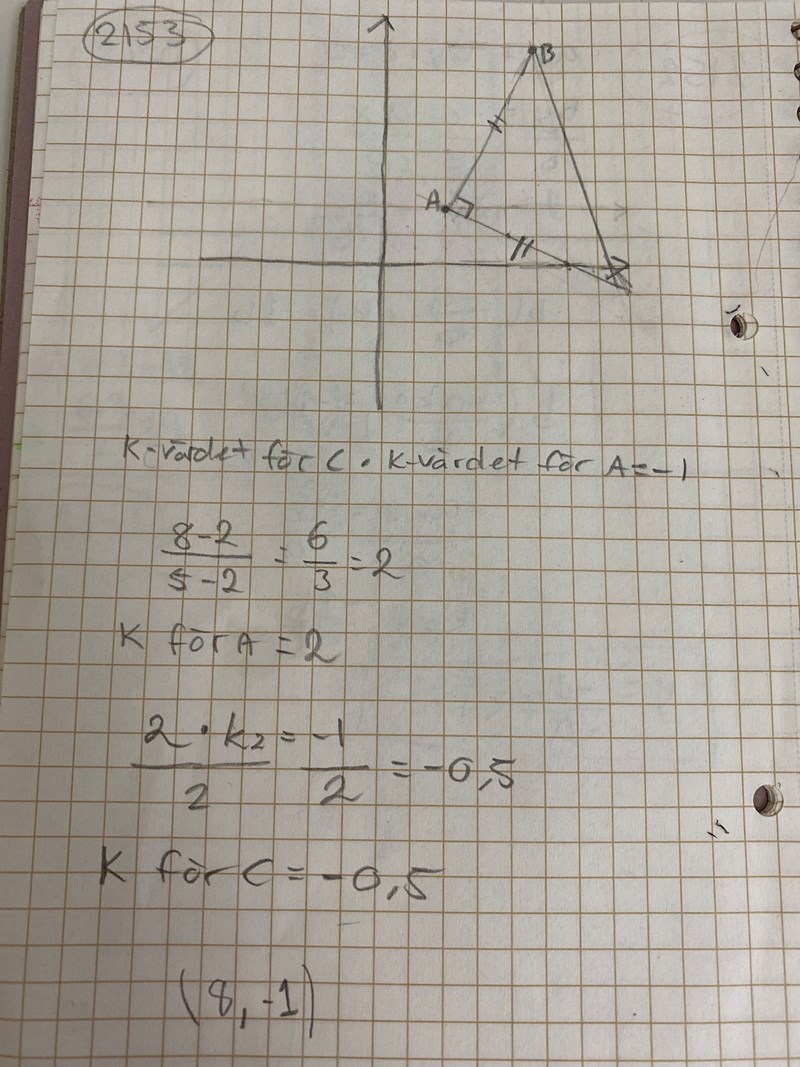 2153
B
A
K-värdet för C · K-värdet för A = -1
8-2 / 5-2 = 6/3 = 2
K för A = 2
2 · k₂ / 2 = -1 / 2 = -0,5
K för C = -0,5
(8, -1)